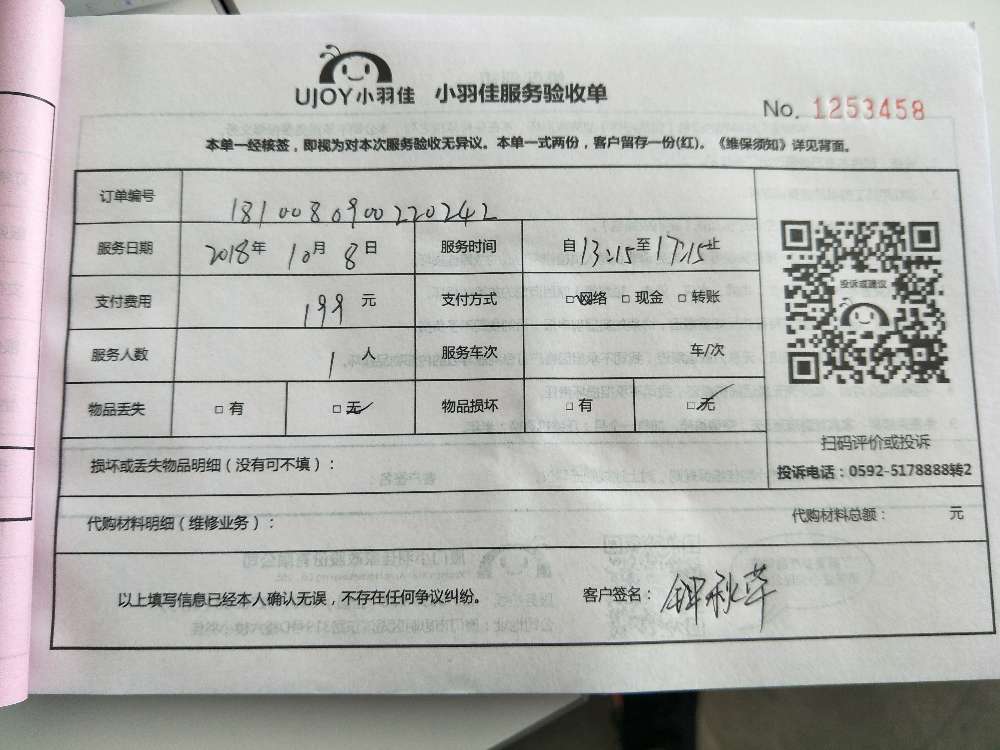 UJOY小羽佳 小羽佳服务验收单
No. 1253458
本单一经核签，即视为对本次服务验收无异议。本单一式两份，客户留存一份(红)。《维保须知》详见背面。
订单编号 1810080900220242
服务日期 2018年 10月 8日 服务时间 自13:15至17:15止
支付费用 199 元 支付方式 □网络 □现金 □转账
服务人数 1 人 服务车次 车/次
物品丢失 □有 □无 物品损坏 □有 □无
投诉或建议
扫码评价或投诉
投诉电话：0592-5178888转2
损坏或丢失物品明细（没有可不填）：
代购材料明细（维修业务）： 代购材料总额： 元
以上填写信息已经本人确认无误，不存在任何争议纠纷。 客户签名：钟秋萍